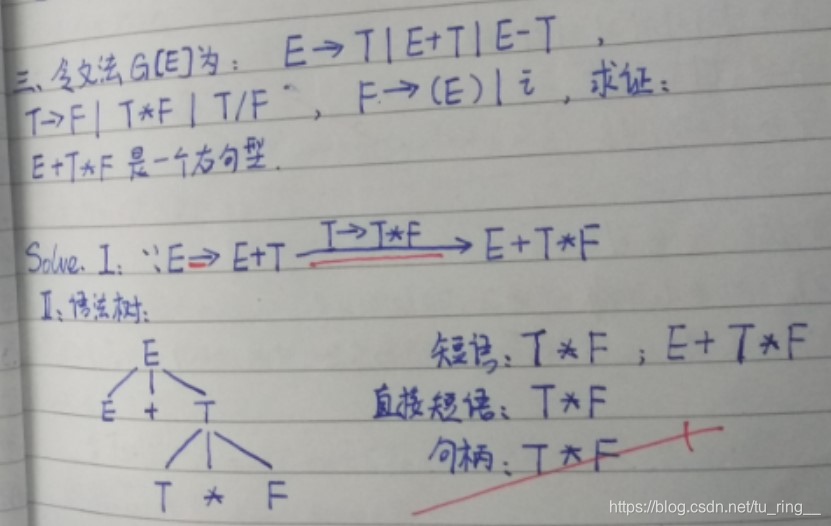 三、令文法G[E]为： E→T|E+T|E-T ，
T→F| T*F | T/F ， F→(E)|i ，求证：
E+T*F 是一个右句型．
Solve. I： ∵E⇒E+T T→T*F E+T*F
II：语法树：
E
E + T
T * F
短语：T*F ；E+T*F
直接短语：T*F
句柄：T*F
https://blog.csdn.net/tu_ring__